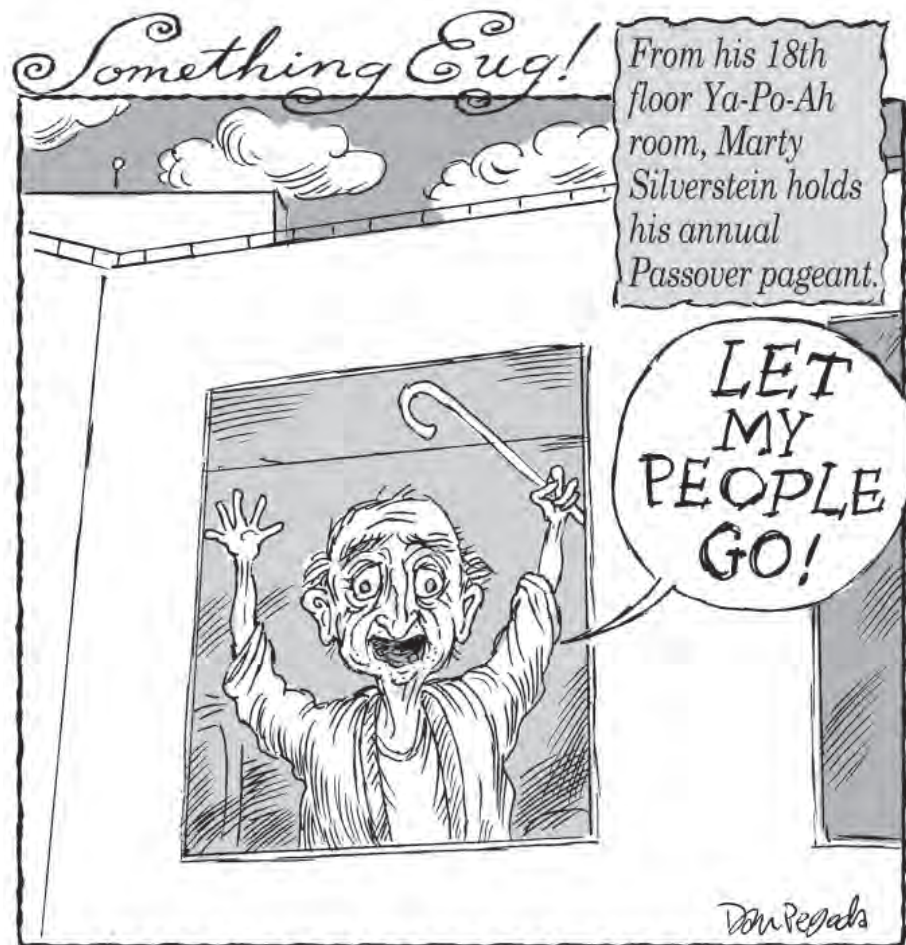 Something Eug!
From his 18th
floor Ya-Po-Ah
room, Marty
Silverstein holds
his annual
Passover pageant.
LET
MY
PEOPLE
GO!
Dan Pegoda